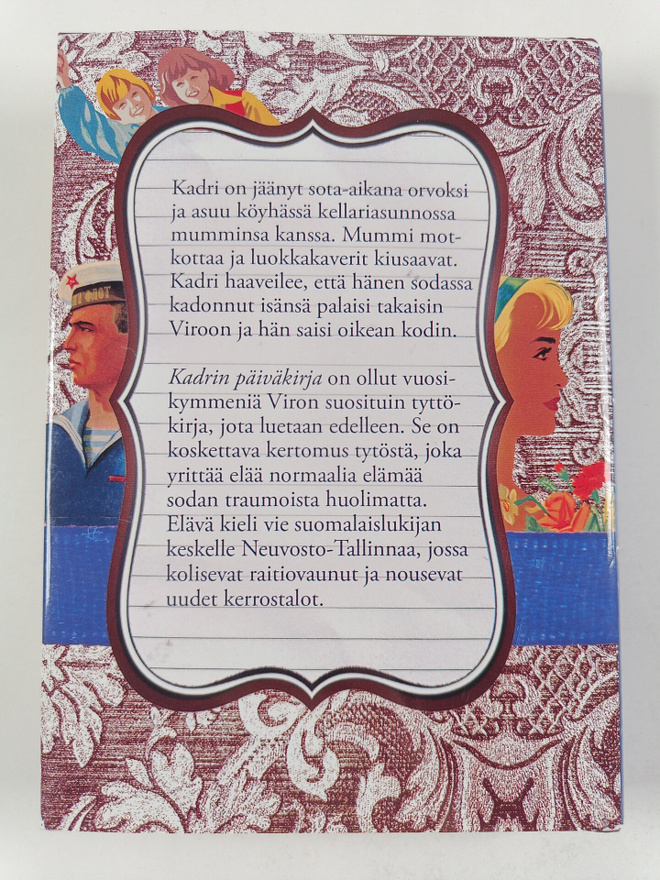 Kadri on jäänyt sota-aikana orvoksi
ja asuu köyhässä kellariasunnossa
mumminsa kanssa. Mummi mot-
kottaa ja luokkakaverit kiusaavat.
Kadri haaveilee, että hänen sodassa
kadonnut isänsä palaisi takaisin
Viroon ja hän saisi oikean kodin.
Kadrin päiväkirja on ollut vuosi-
kymmeniä Viron suosituin tyttö-
kirja, jota luetaan edelleen. Se on
koskettava kertomus tytöstä, joka
yrittää elää normaalia elämää
sodan traumoista huolimatta.
Elävä kieli vie suomalaislukijan
keskelle Neuvosto-Tallinnaa, jossa
kolisevat raitiovaunut ja nousevat
uudet kerrostalot.
ФЛОТ